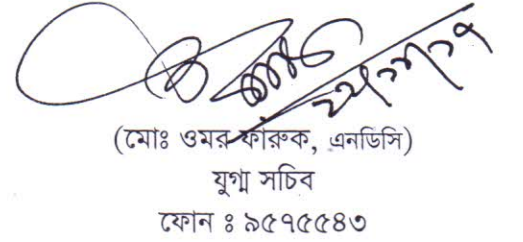 (মোঃ ওমর ফারুক, এনডিসি)
যুগ্ম সচিব
ফোন ঃ ৯৫৭৫৫৪৩